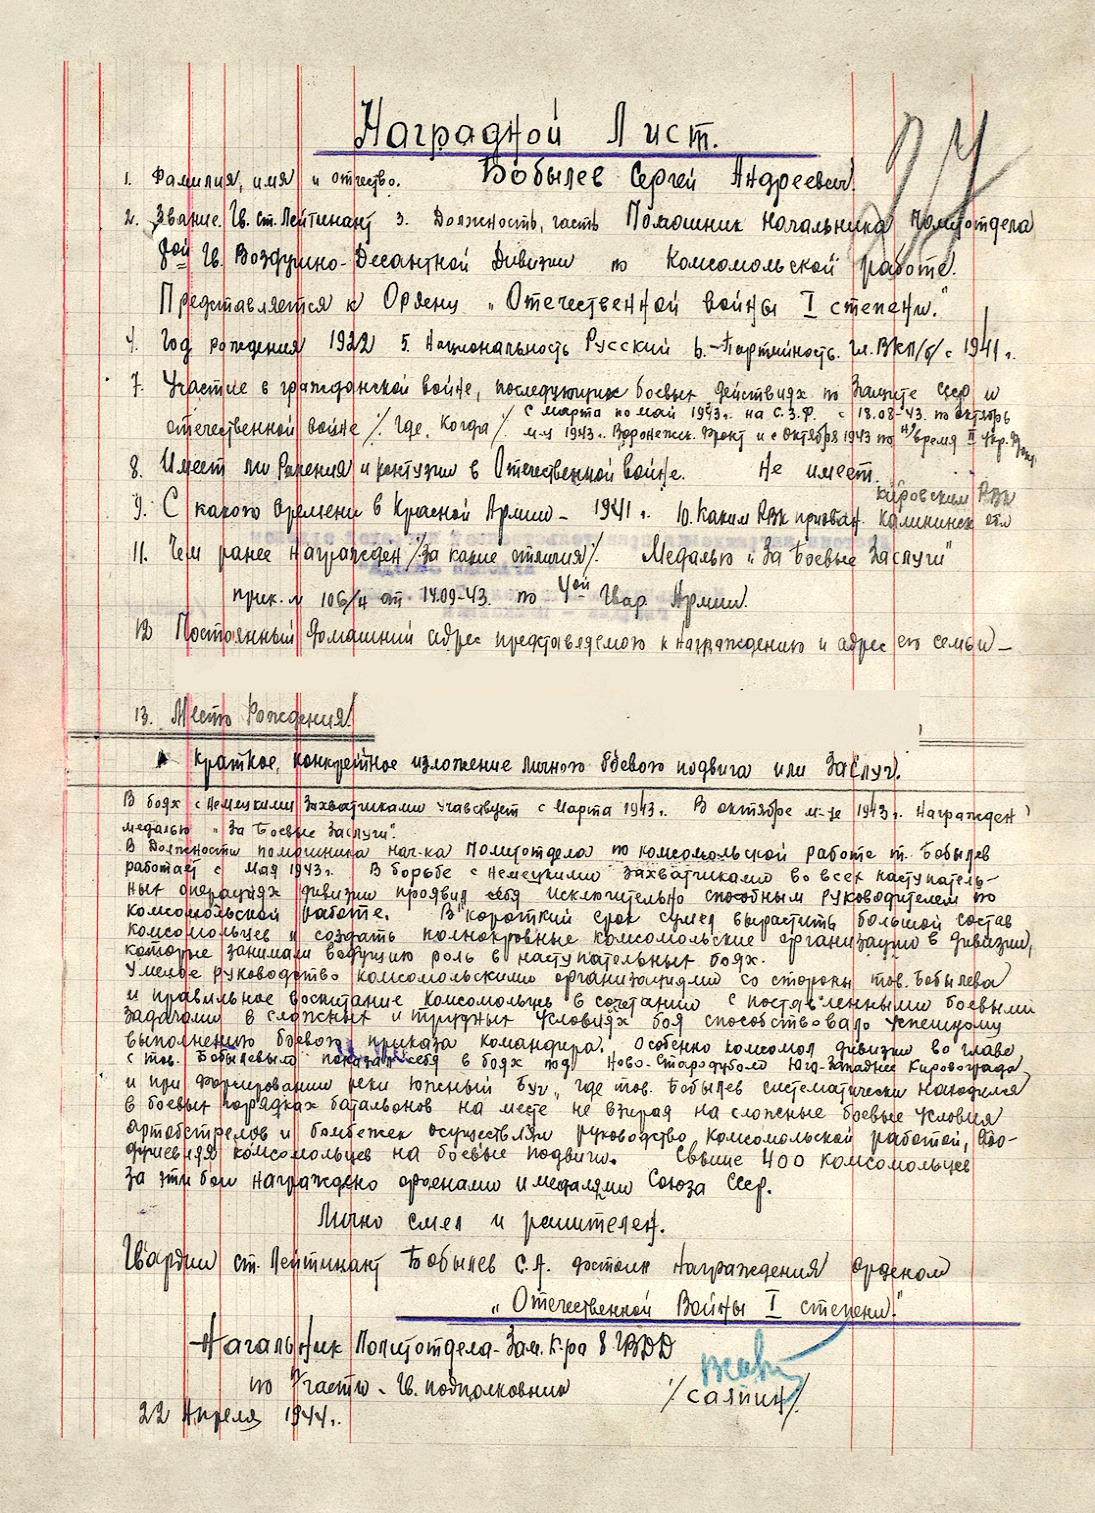 Наградной Лист.
1. Фамилия, имя и отчество. Бобылев Сергей Андреевич.
2. Звание. Гв. ст. Лейтинант 3. Должность, часть Помошник Начальника Политотдела
8ой Гв. Воздушно-Десантной Дивизии по Комсомольской работе.
Представляется к Ордену „Отечественной войны I степени."
4. Год рождения 1922 5. Национальность Русский 6.-Партийность. чл. ВКП/б/ с 1941 г.
7. Участие в гражданской войне, последующих боевых действиях по Защите СССР и
отечественной войне /. Где, Когда / с Марта по май 1943 г. на С.З.Ф. с 18.08-43. по октябрь
м-ц 1943 г. Воронежск. Фронт и с Октября 1943 по н/время II Укр. Фронт
8. Имеет ли Ранения и контузии в Отечественной войне. Не имеет.
9. С какого времени в Красной Армии - 1941 г. 10. Каким РВК призван. Кировским РВК
Калининск обл
11. Чем ранее награжден /за какие отличия/. Медалью „За Боевые Заслуги"
прик. № 106/н от 14.09-43. по 4ой Гвар. Армии.
12 Постоянный Домашний адрес представляемого к награждению и адрес его семьи -
13. Место Рождения
Краткое, конкретное изложение личного боевого подвига или Заслуг.
В боях с Немецкими Захватчиками учавствует с Марта 1943 г. В октябре м-це 1943 г. Награжден
медалью „За Боевые Заслуги".
В Должности помошника нач-ка Политотдела по комсомольской работе т. Бобылев
работает с Мая 1943 г. В борьбе с немецкими захватчиками во всех наступатель-
ных операциях дивизии проявил себя исключительно способным руководителем по
комсомольской работе. В короткий срок сумел вырастить большой состав
комсомольцев и создать полнокровные комсомольские организации в дивизии,
которые занимали ведущую роль в наступательных боях.
Умелое руководство комсомольскими организациями со стороны тов. Бобылева
и правильное воспитание комсомольцев в сочетании с поставленными боевыми
задачами в сложных и трудных условиях боя способствовало успешному
выполнению боевого приказа командира. Особенно комсомол дивизии во главе
с тов. Бобылевым показал себя в боях под Ново-Стародубом Юго-Западнее Кировограда
и при форсировании реки Южный Буг, где тов. Бобылев систематически находился
в боевых порядках батальонов на месте не взирая на сложные боевые условия
артобстрелов и бомбежек осуществлял руководство комсомольской работой, воо-
душевляя комсомольцев на боевые подвиги. Свыше 400 комсомольцев
за эти бои награждено орденами и медалями Союза ССР.
Лично смел и решителен.
Гвардии ст. Лейтинант Бобылев С.А. достоин награждения орденом
„Отечественной Войны I степени."
Начальник Политотдела-Зам. К-ра 8 ГВДД
по п/части - Гв. подполковник /саяпин/
22 Апреля 1944 г.